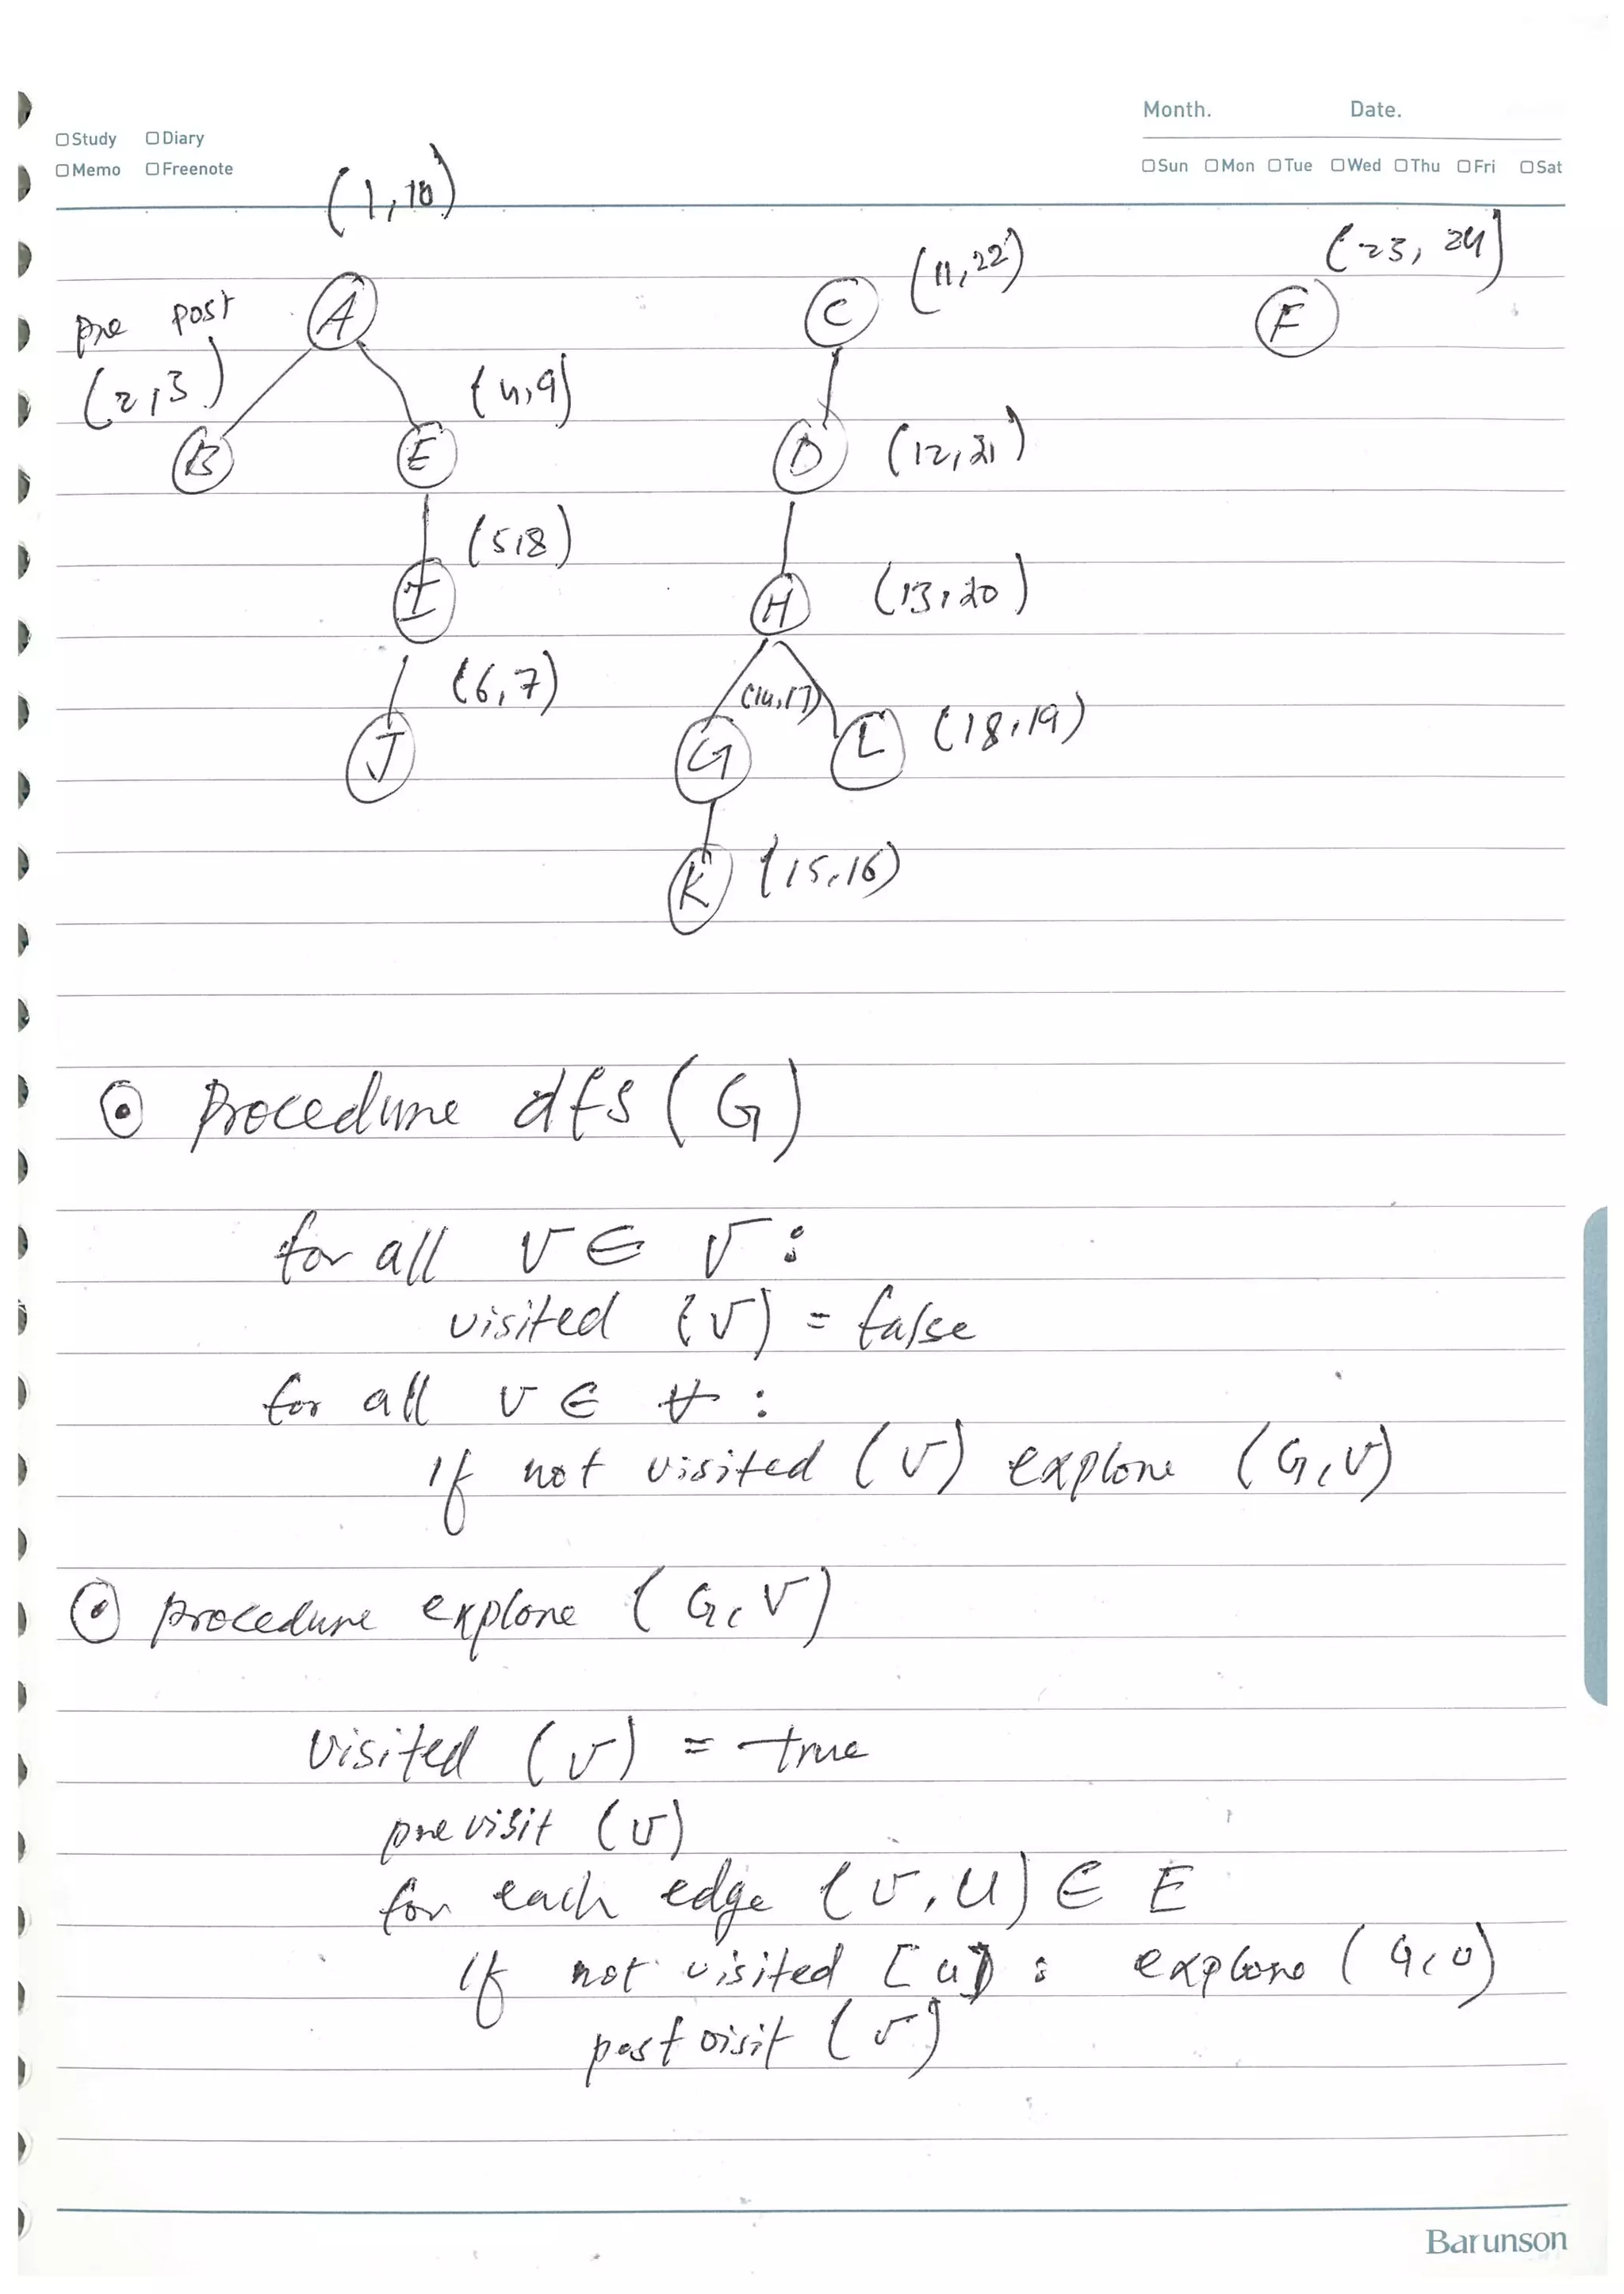 Month. Date.
Study Diary
Memo Freenote
Sun Mon Tue Wed Thu Fri Sat
(1,10)
(11,22) (23, 24)
pre post A C F
(2,3) (4,9)
B E D (12,21)
(5,8)
I H (13,20)
(6,7) (14,17)
J G L (18,19)
K (15,16)
Procedure dfs (G)
for all v ∈ V :
visited (v) = false
for all v ∈ V :
If not visited (v) explore (G,v)
procedure explore (G,V)
visited (v) = true
previsit (v)
for each edge (v,u) ∈ E
If not visited [u] : explore (G,u)
postvisit (v)
Barunson